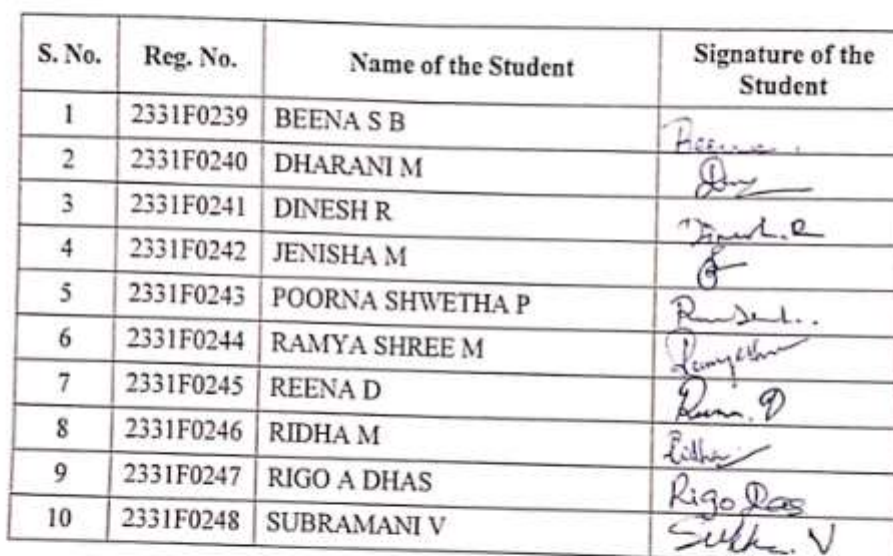 S. No. Reg. No. Name of the Student Signature of the Student
1 2331F0239 BEENA S B Beena.
2 2331F0240 DHARANI M
3 2331F0241 DINESH R Dinesh.R
4 2331F0242 JENISHA M
5 2331F0243 POORNA SHWETHA P
6 2331F0244 RAMYA SHREE M
7 2331F0245 REENA D Reena. D
8 2331F0246 RIDHA M Ridha
9 2331F0247 RIGO A DHAS Rigo Das
10 2331F0248 SUBRAMANI V